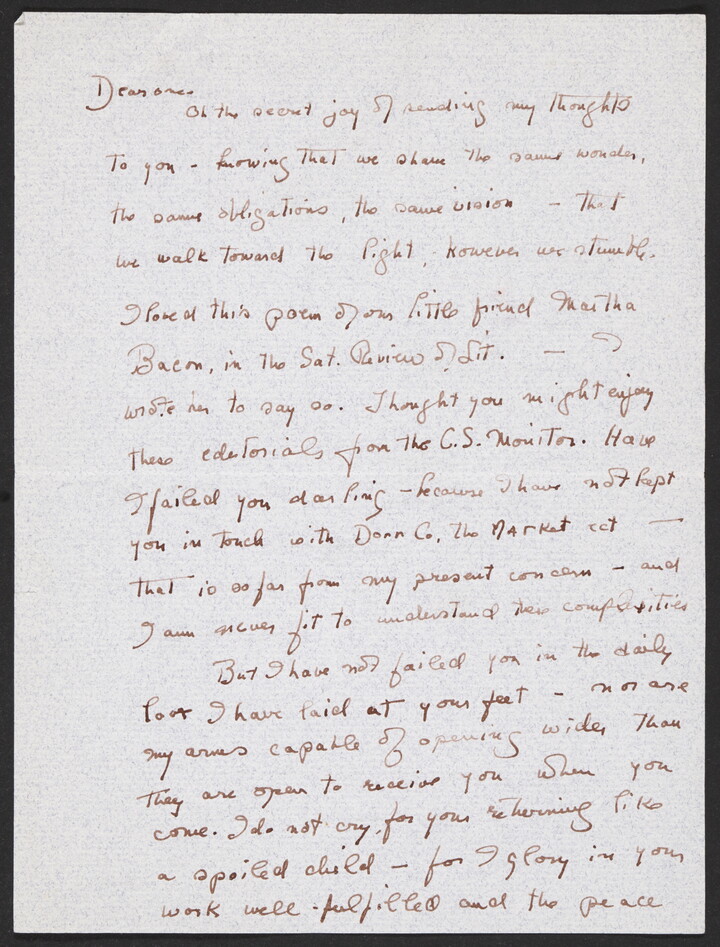 Dearone.
Oh the secret joy of sending my thoughts
to you - knowing that we share the same wonder,
the same obligations, the same vision - that
we walk toward the light, however we stumble.
I loved this poem of our little friend Martha
Bacon, in the Sat. Review of Lit. —
wrote her to say so. Thought you might enjoy
these editorials from the C.S. Monitor. Have
I failed you darling - because I have not kept
you in touch with Donn Co, the MArket ect —
that is so far from my present concern - and
I am never fit to understand these complexities
But I have not failed you in the daily
love I have laid at your feet - nor are
my arms capable of opening wider than
they are open to receive you when you
come. I do not cry for your returning like
a spoiled child - for I glory in your
work well-fulfilled and the peace